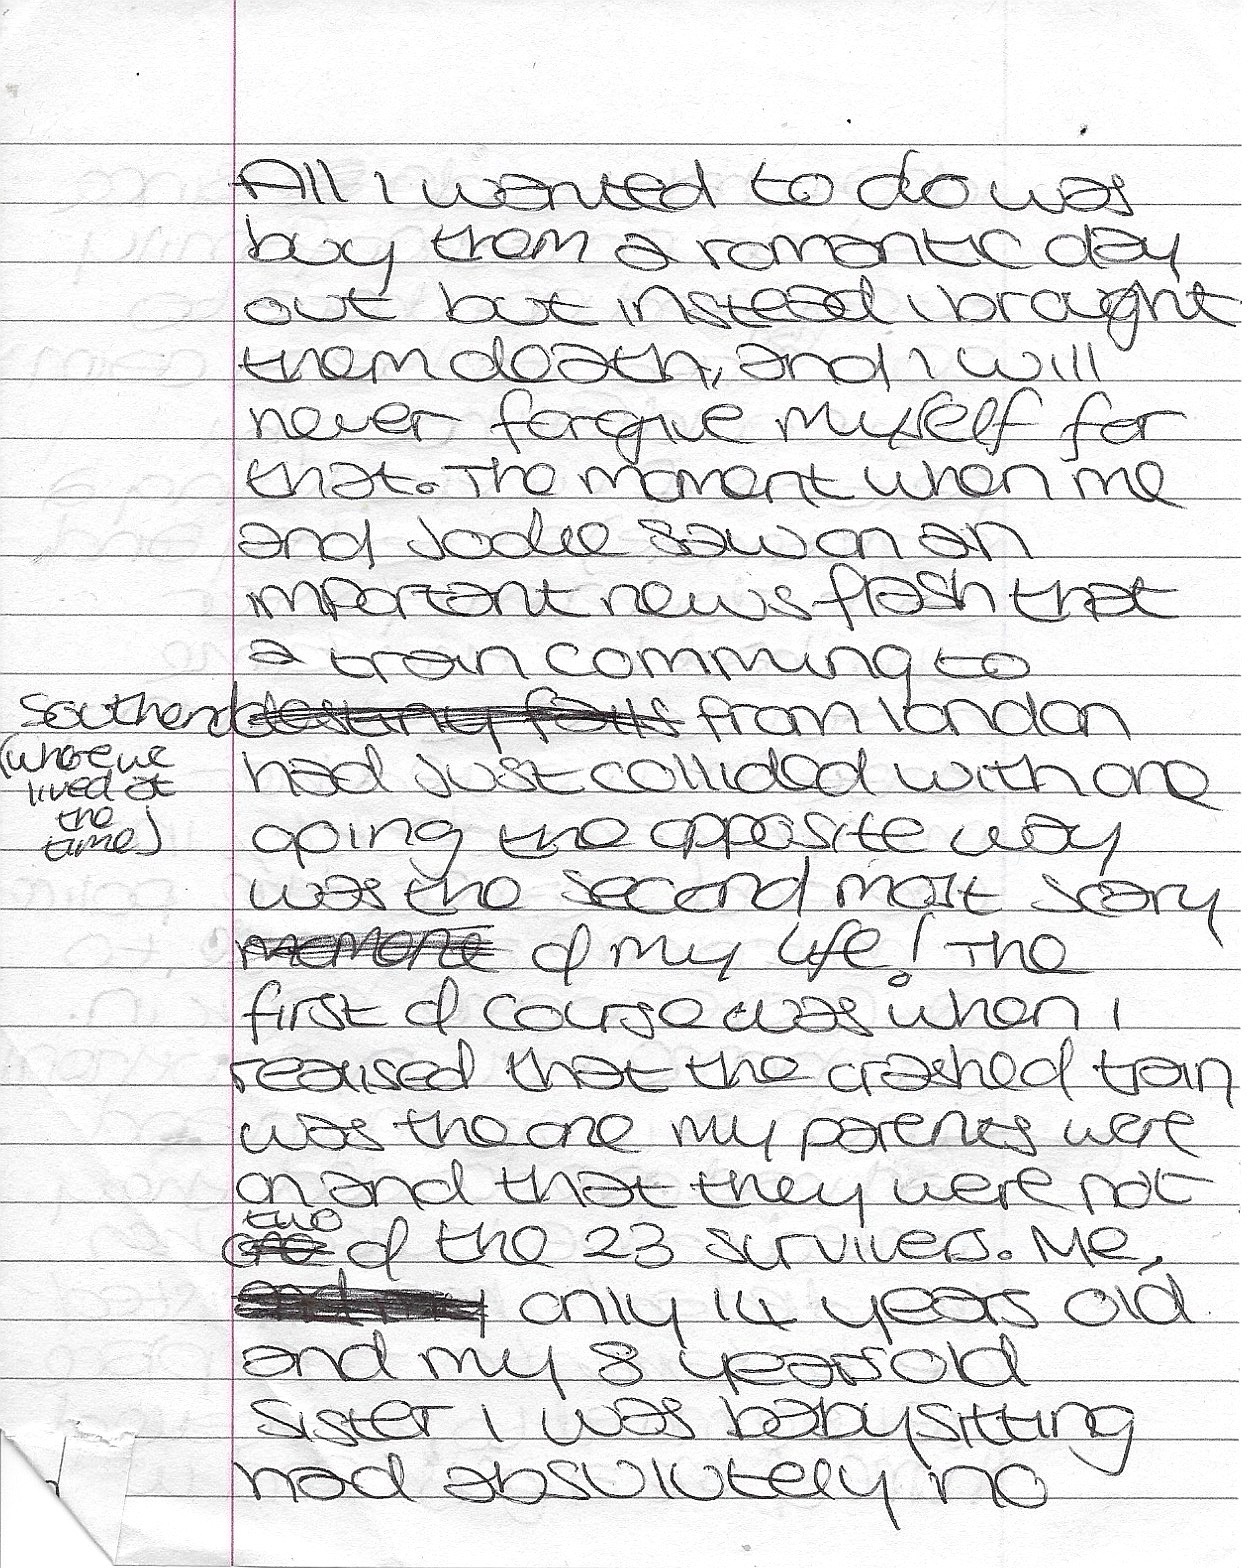 All I wanted to do was
buy them a romantic day
out but instead I brought
them death, and I will
never forgive myself for
that. The moment when me
and Jodie saw on an
important news flash that
a train comming to
Southend destiny falls from london
(where we
lived at
the
time)
had just collided with one
going the opposite way
was the second most scary
memorie of my life! The
first of course was when I
realised that the crashed train
was the one my parents were
on and that they were not
two
one of the 23 survivers. Me,
and my only 14 years old
and my 8 years old
sister I was babysitting
had absolutely no